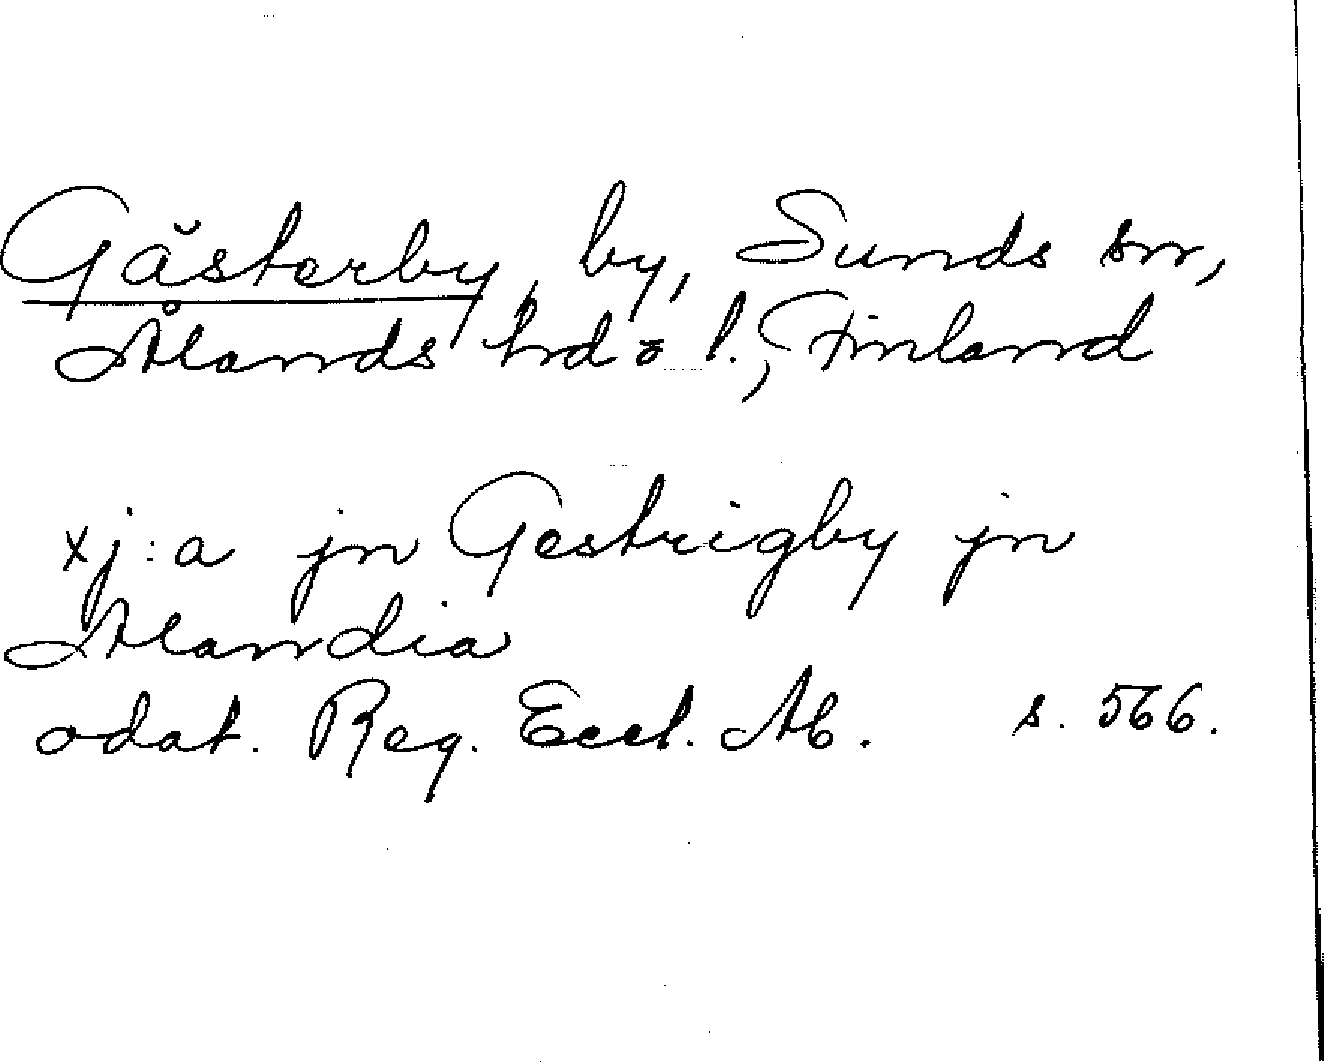 Gästerby, by, Sunds sn,
Ålands hd o l., Finland
xj:a jn Gestrigby jn
Alandia
odat. Reg. Eccl. Ab. s. 566.